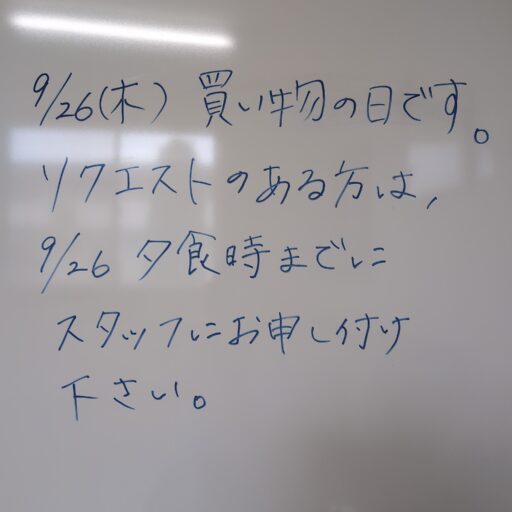 9/26(木) 買い物の日です。
リクエストのある方は,
9/26 夕食時までに
スタッフにお申し付け
下さい。